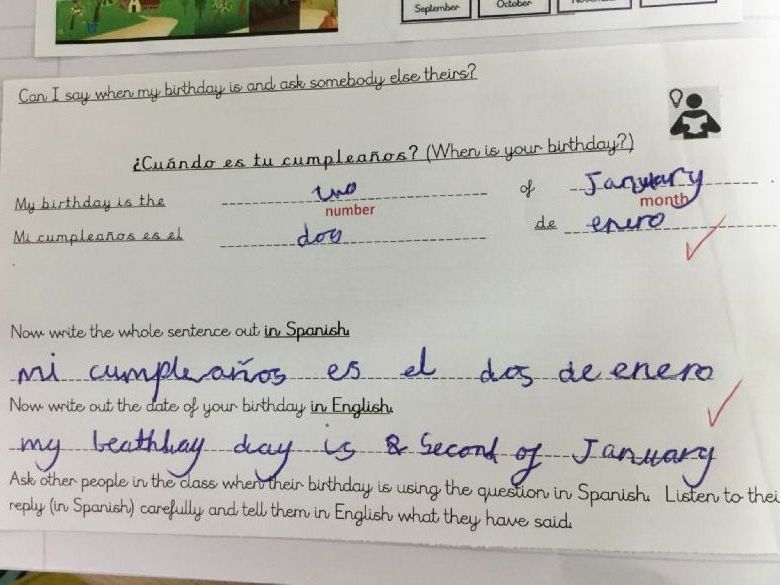 September October
Can I say when my birthday is and ask somebody else theirs?
¿Cuándo es tu cumpleaños? (When is your birthday?)
My birthday is the two of January.
number month
Mi cumpleaños es el dos de enero
Now write the whole sentence out in Spanish.
mi cumpleaños es el dos de enero
Now write out the date of your birthday in English.
my beathbay day is & Second of January
Ask other people in the class when their birthday is using the question in Spanish. Listen to thei
reply (in Spanish) carefully and tell them in English what they have said.